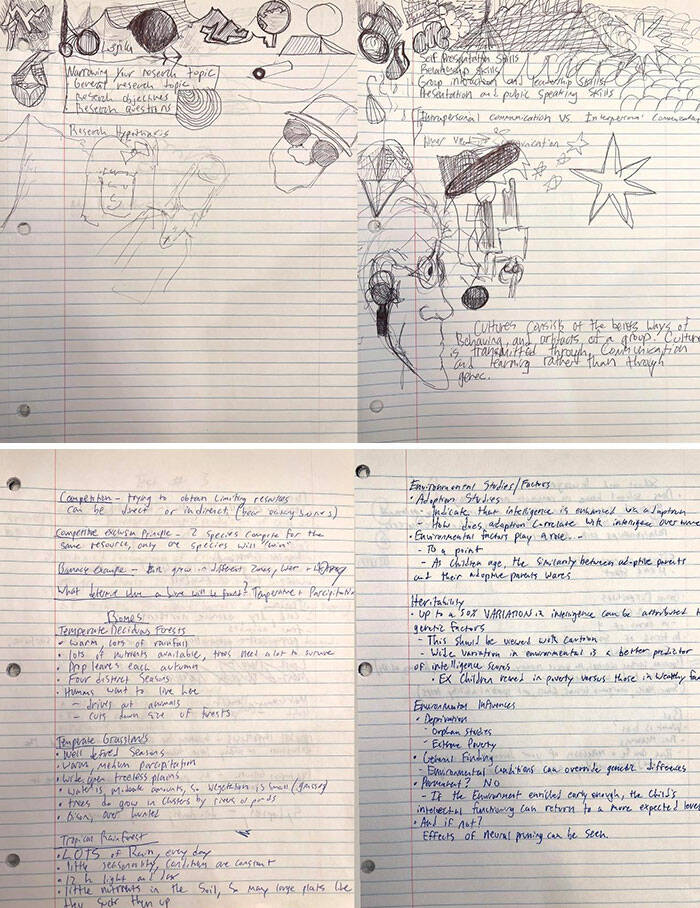 Narrowing your reserch topic
General reserch topic
Reserch objectives
Reserch questions
Reserch Hypothisis
Self Presentation skills
Relationship skills
Group interaction and leadership skills
Presentation and public speaking skills
Intrapersonal communication VS Interpersonal
Cultures consist of the beliefs ways of
Behaving, and artifacts of a group. Culture
is transmitted through communication
and learning rather than through
genes.
Competition - trying to obtain limiting resources
can be direct or indirect
Competitive exclusion Principle - 2 species compete for the
same resource, only one species will "win"
grow in different zones,
What determines where a biome will be found? Temperature + Percipitation
Biomes
Temperate Decidious Forests
• Warm, lots of rainfall
• lots of nutrients available, trees need a lot to survive
• Drop leaves each autumn
• Four distinct seasons
• Humans want to live here
- drives out animals
- cuts down size of forests
Temperate Grasslands
• Well defined seasons
• Warm, medium percipitation
• Wide open treeless plains
• Water is moderate amounts, so vegetation is small (grasses)
• trees do grow in clusters by rivers or ponds
• Bison, over hunted
Tropical Rainforest
• LOTS of Rain, every day
• little seasonality, conditions are constant
• 12 h light and
• little nutrients in the soil, so many large plants
they suck them up
Environmental Studies/Factors
• Adoption Studies
- Indicate that intelligence is enhanced via adoption
- How does adoption correlate with intelligence over time
• Environmental factors play a role...
- To a point
- As children age, the similarity between adoptive parents
and their adoptive parents wares
Heritability
• up to a 50% VARIATION in intelligence can be attributed to
genetic factors
- This should be viewed with caution
- Wide variation in environmental is a better predictor
of intelligence scores
• EX Children reared in poverty versus those in wealthy
Environmental Influences
• Deprivation
- Orphan studies
- Extreme Poverty
• General Finding
- Environmental conditions can override genetic differences
• Permanent? NO
- If the Environment enriched early enough, the child's
intellectual functioning can return to a more expected level
• And if not?
Effects of neural pruning can be seen